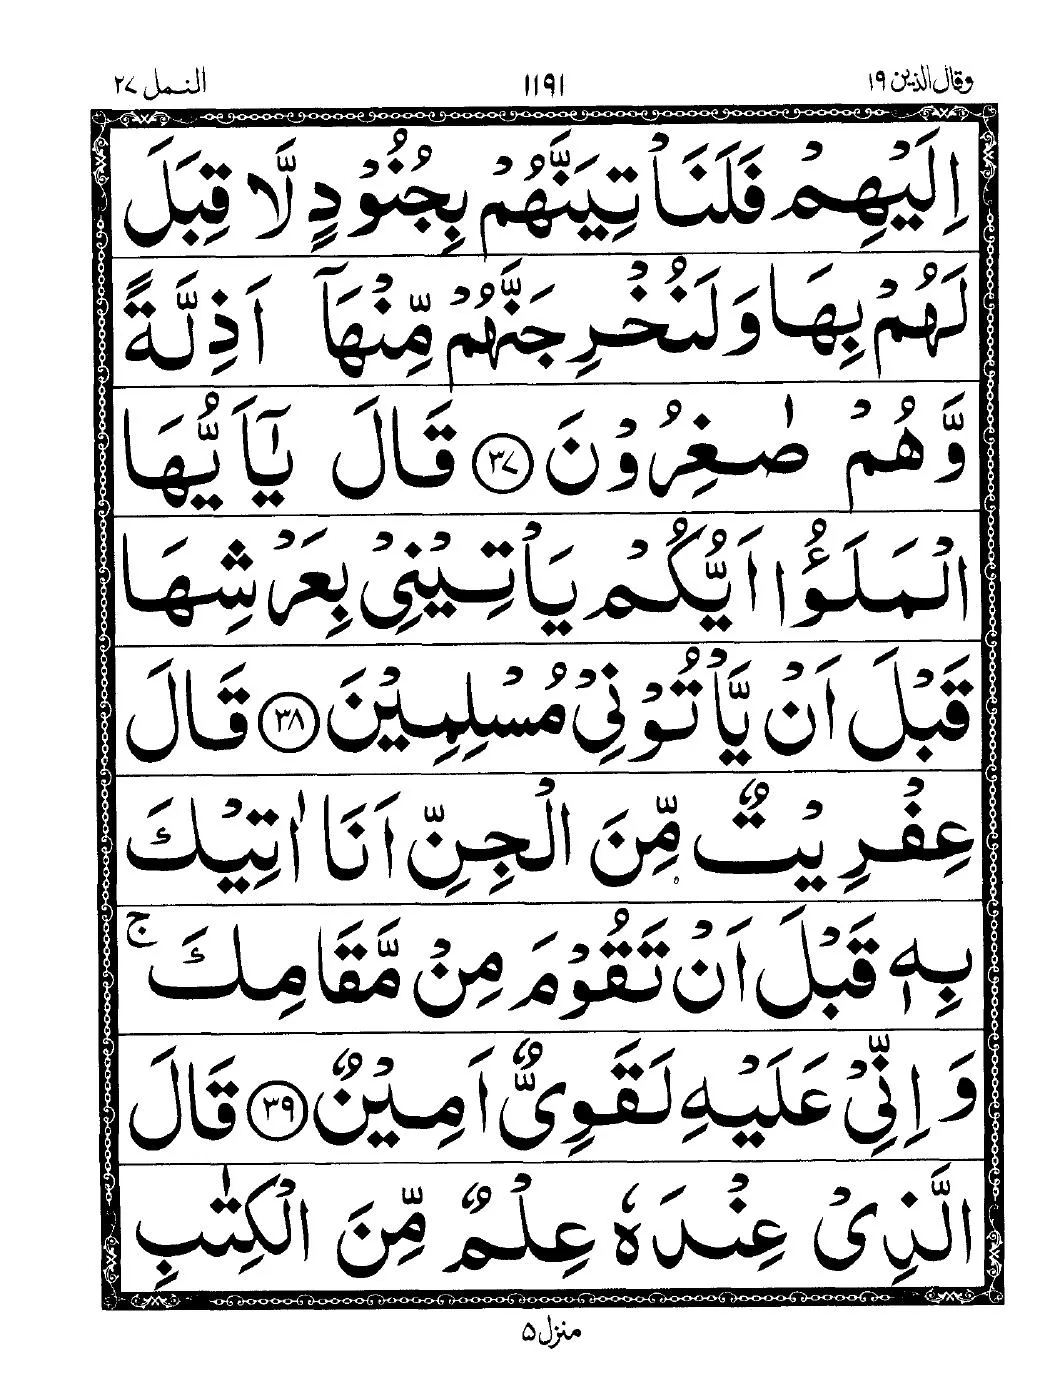 وقال الذین ۱۹
۱۱۹۱
النمل ۲۷
اِلَیْهِمْ فَلَنَاْتِیَنَّهُمْ بِجُنُوْدٍ لَّا قِبَلَ
لَهُمْ بِهَا وَلَنُخْرِجَنَّهُمْ مِّنْهَاۤ اَذِلَّةً
وَّهُمْ صٰغِرُوْنَ ۳۷ قَالَ یٰۤاَیُّهَا
الْمَلَؤُا اَیُّكُمْ یَاْتِیْنِیْ بِعَرْشِهَا
قَبْلَ اَنْ یَّاْتُوْنِیْ مُسْلِمِیْنَ ۳۸ قَالَ
عِفْرِیْتٌ مِّنَ الْجِنِّ اَنَا اٰتِیْكَ
بِهٖ قَبْلَ اَنْ تَقُوْمَ مِنْ مَّقَامِكَ ۚ
وَ اِنِّیْ عَلَیْهِ لَقَوِیٌّ اَمِیْنٌ ۳۹ قَالَ
الَّذِیْ عِنْدَهٗ عِلْمٌ مِّنَ الْكِتٰبِ
منزل ۵